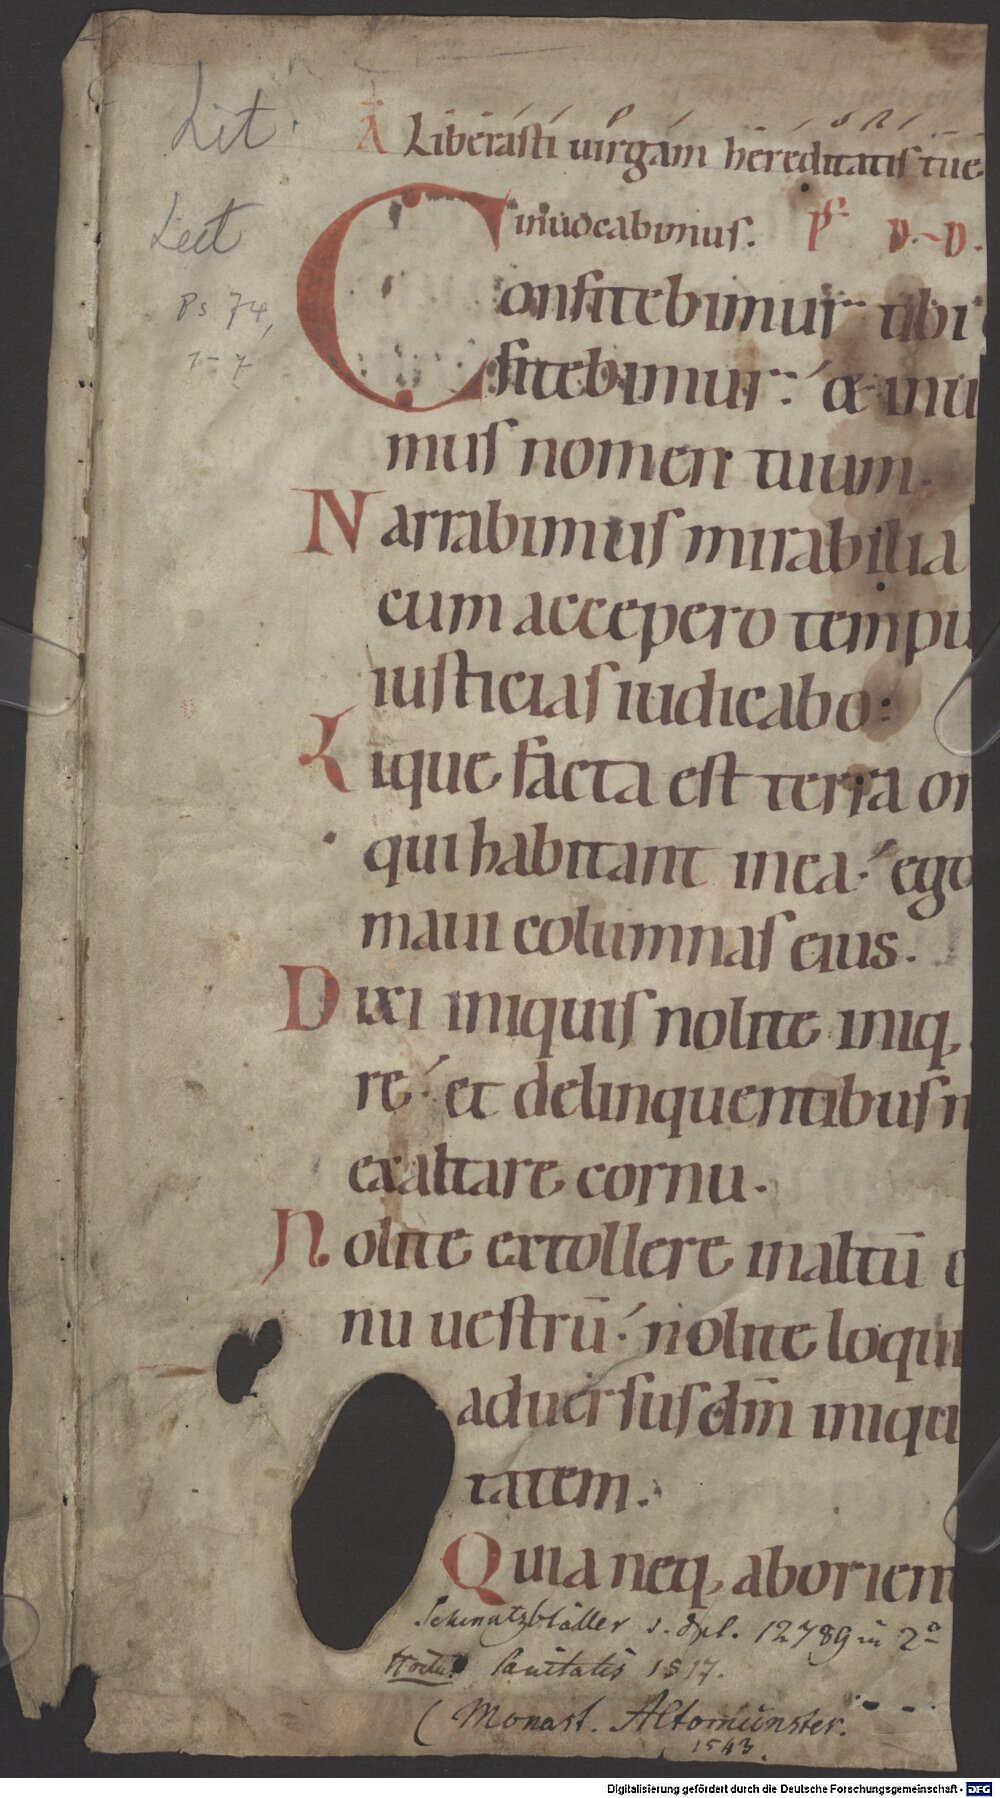 Lit.
A Liberasti uirgam hereditatis tue
Lect
inuocabimus. Ps D. D.
Ps 74,
1-7
Confitebimur tibi
fitebimur: & inu
mus nomen tuum.
Narrabimus mirabilia
cum accepero tempu
iusticias iudicabo:
Lique facta est terra o
qui habitant in ea: ego
maui columnas eius.
Dixi iniquis nolite iniq,
re: et delinquentibus n
exaltare cornu.
Nolite extollere in altū c
nu uestrū: nolite loqui
aduersus dm̄ iniqui
tatem.
Quia neq, ab orien
Schmutzblätter s. Expl. 12789 in 2°
Hortus Sanitatis 1517.
(Monast. Altomünster.
1543.
Digitalisierung gefördert durch die Deutsche Forschungsgemeinschaft - DFG